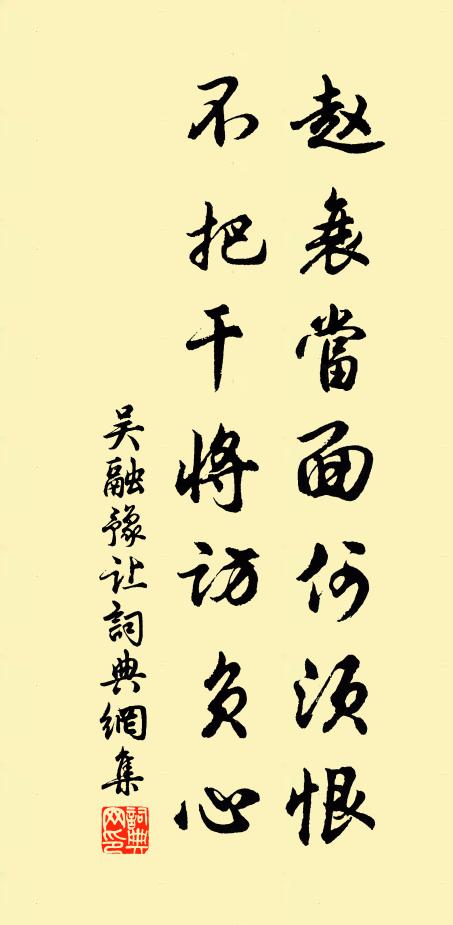 赵衰當面何须恨
不把干将访负心
吴融豫让詞典網集
詞典网印